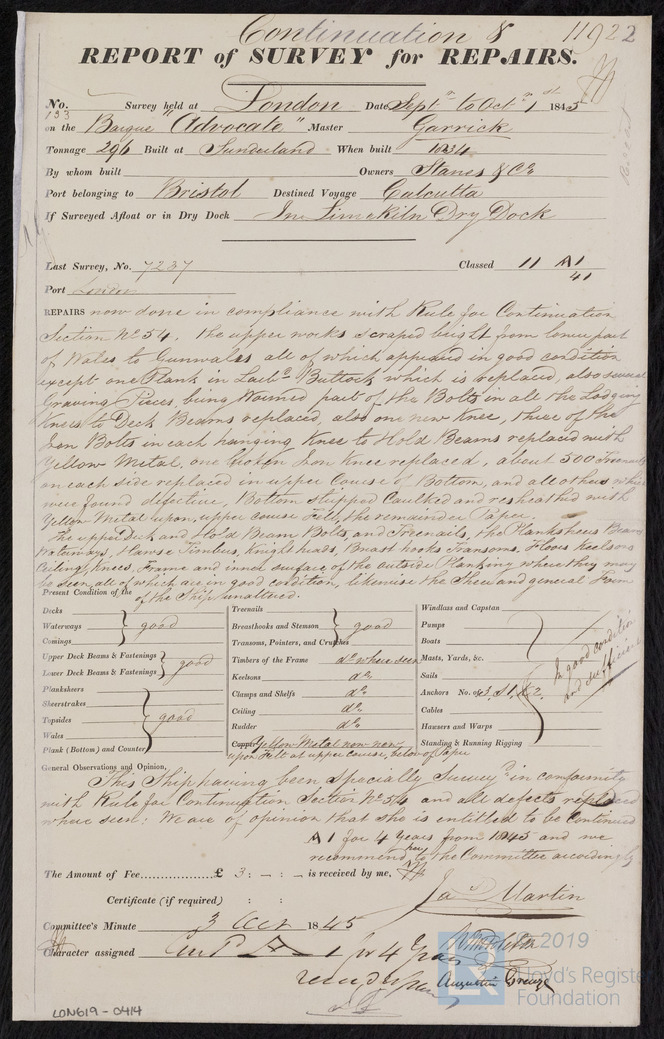 Continuation 8 11922
REPORT of SURVEY for REPAIRS.
No. 133 Survey held at London Date Sept to Oct 1st 1845
on the Barque "Advocate" Master Garrick
Tonnage 296 Built at Sunderland When built 1834
By whom built Owners Stanes & Co
Port belonging to Bristol Destined Voyage Calcutta
If Surveyed Afloat or in Dry Dock In Limekiln Dry Dock
Last Survey, No. 7237 Classed 11 A1
41
Port London
REPAIRS now done in compliance with Rule for Continuation
Section No 54. The upper works scraped bright from lower part
of Wales to Gunwales all of which appeared in good condition
except one Plank in Larbd Buttock which is replaced, also several
Graving Pieces, being wormed part of the Bolts in all the Lodging
Knees to Deck Beams replaced, also one new Knee, three of the
Iron Bolts in each hanging Knee to Hold Beams replaced with
Yellow Metal, one broken Iron Knee replaced, about 500 Treenails
on each side replaced in upper Course of Bottom, and all others which
were found defective, Bottom stripped Caulked and resheathed with
Yellow Metal upon, upper course Felt, the remainder Paper.
The upper Deck and Hold Beam Bolts, and Treenails, the Planksheers Beams
Waterways, Hawse Timbers, Knightheads, Breast hooks Transoms, Floors Keelsons
Ceiling, Knees, Frame and inner surface of the outside Planking where they may
be seen, all of which are in good condition, likewise the Sheer and general Form
Present Condition of the of the Ship unaltered.
Decks
Waterways good
Comings
Upper Deck Beams & Fastenings
Lower Deck Beams & Fastenings good
Planksheers
Sheerstrakes
Topsides good
Wales
Plank (Bottom) and Counter
Treenails
Breasthooks and Stemson good
Transoms, Pointers, and Crutches
Timbers of the Frame do where seen
Keelsons do
Clamps and Shelfs do
Ceiling do
Rudder do
Copper Yellow Metal now new
upon Felt at upper course, below of Paper
Windlass and Capstan
Pumps
Boats
Masts, Yards, &c.
Sails
Anchors No. of 3. S1. K2.
Cables
Hawsers and Warps
Standing & Running Rigging
In good condition
and sufficient
General Observations and Opinion,
This Ship having been Specially Surveyd in conformity
with Rule for Continuation Section No 54 and all defects replaced
where seen: We are of opinion that she is entitled to be Continued
A1 for 4 Years from 1845 and we
recommend her to the Committee accordingly
The Amount of Fee £ 3 : – : – is received by me,
Certificate (if required) : :
Jas Martin
Committee's Minute 3 Oct 1845
Character assigned Cont A 1 for 4 Years
Augustin Creuze
LON619-0414
© 2019
Lloyd's Register
Foundation